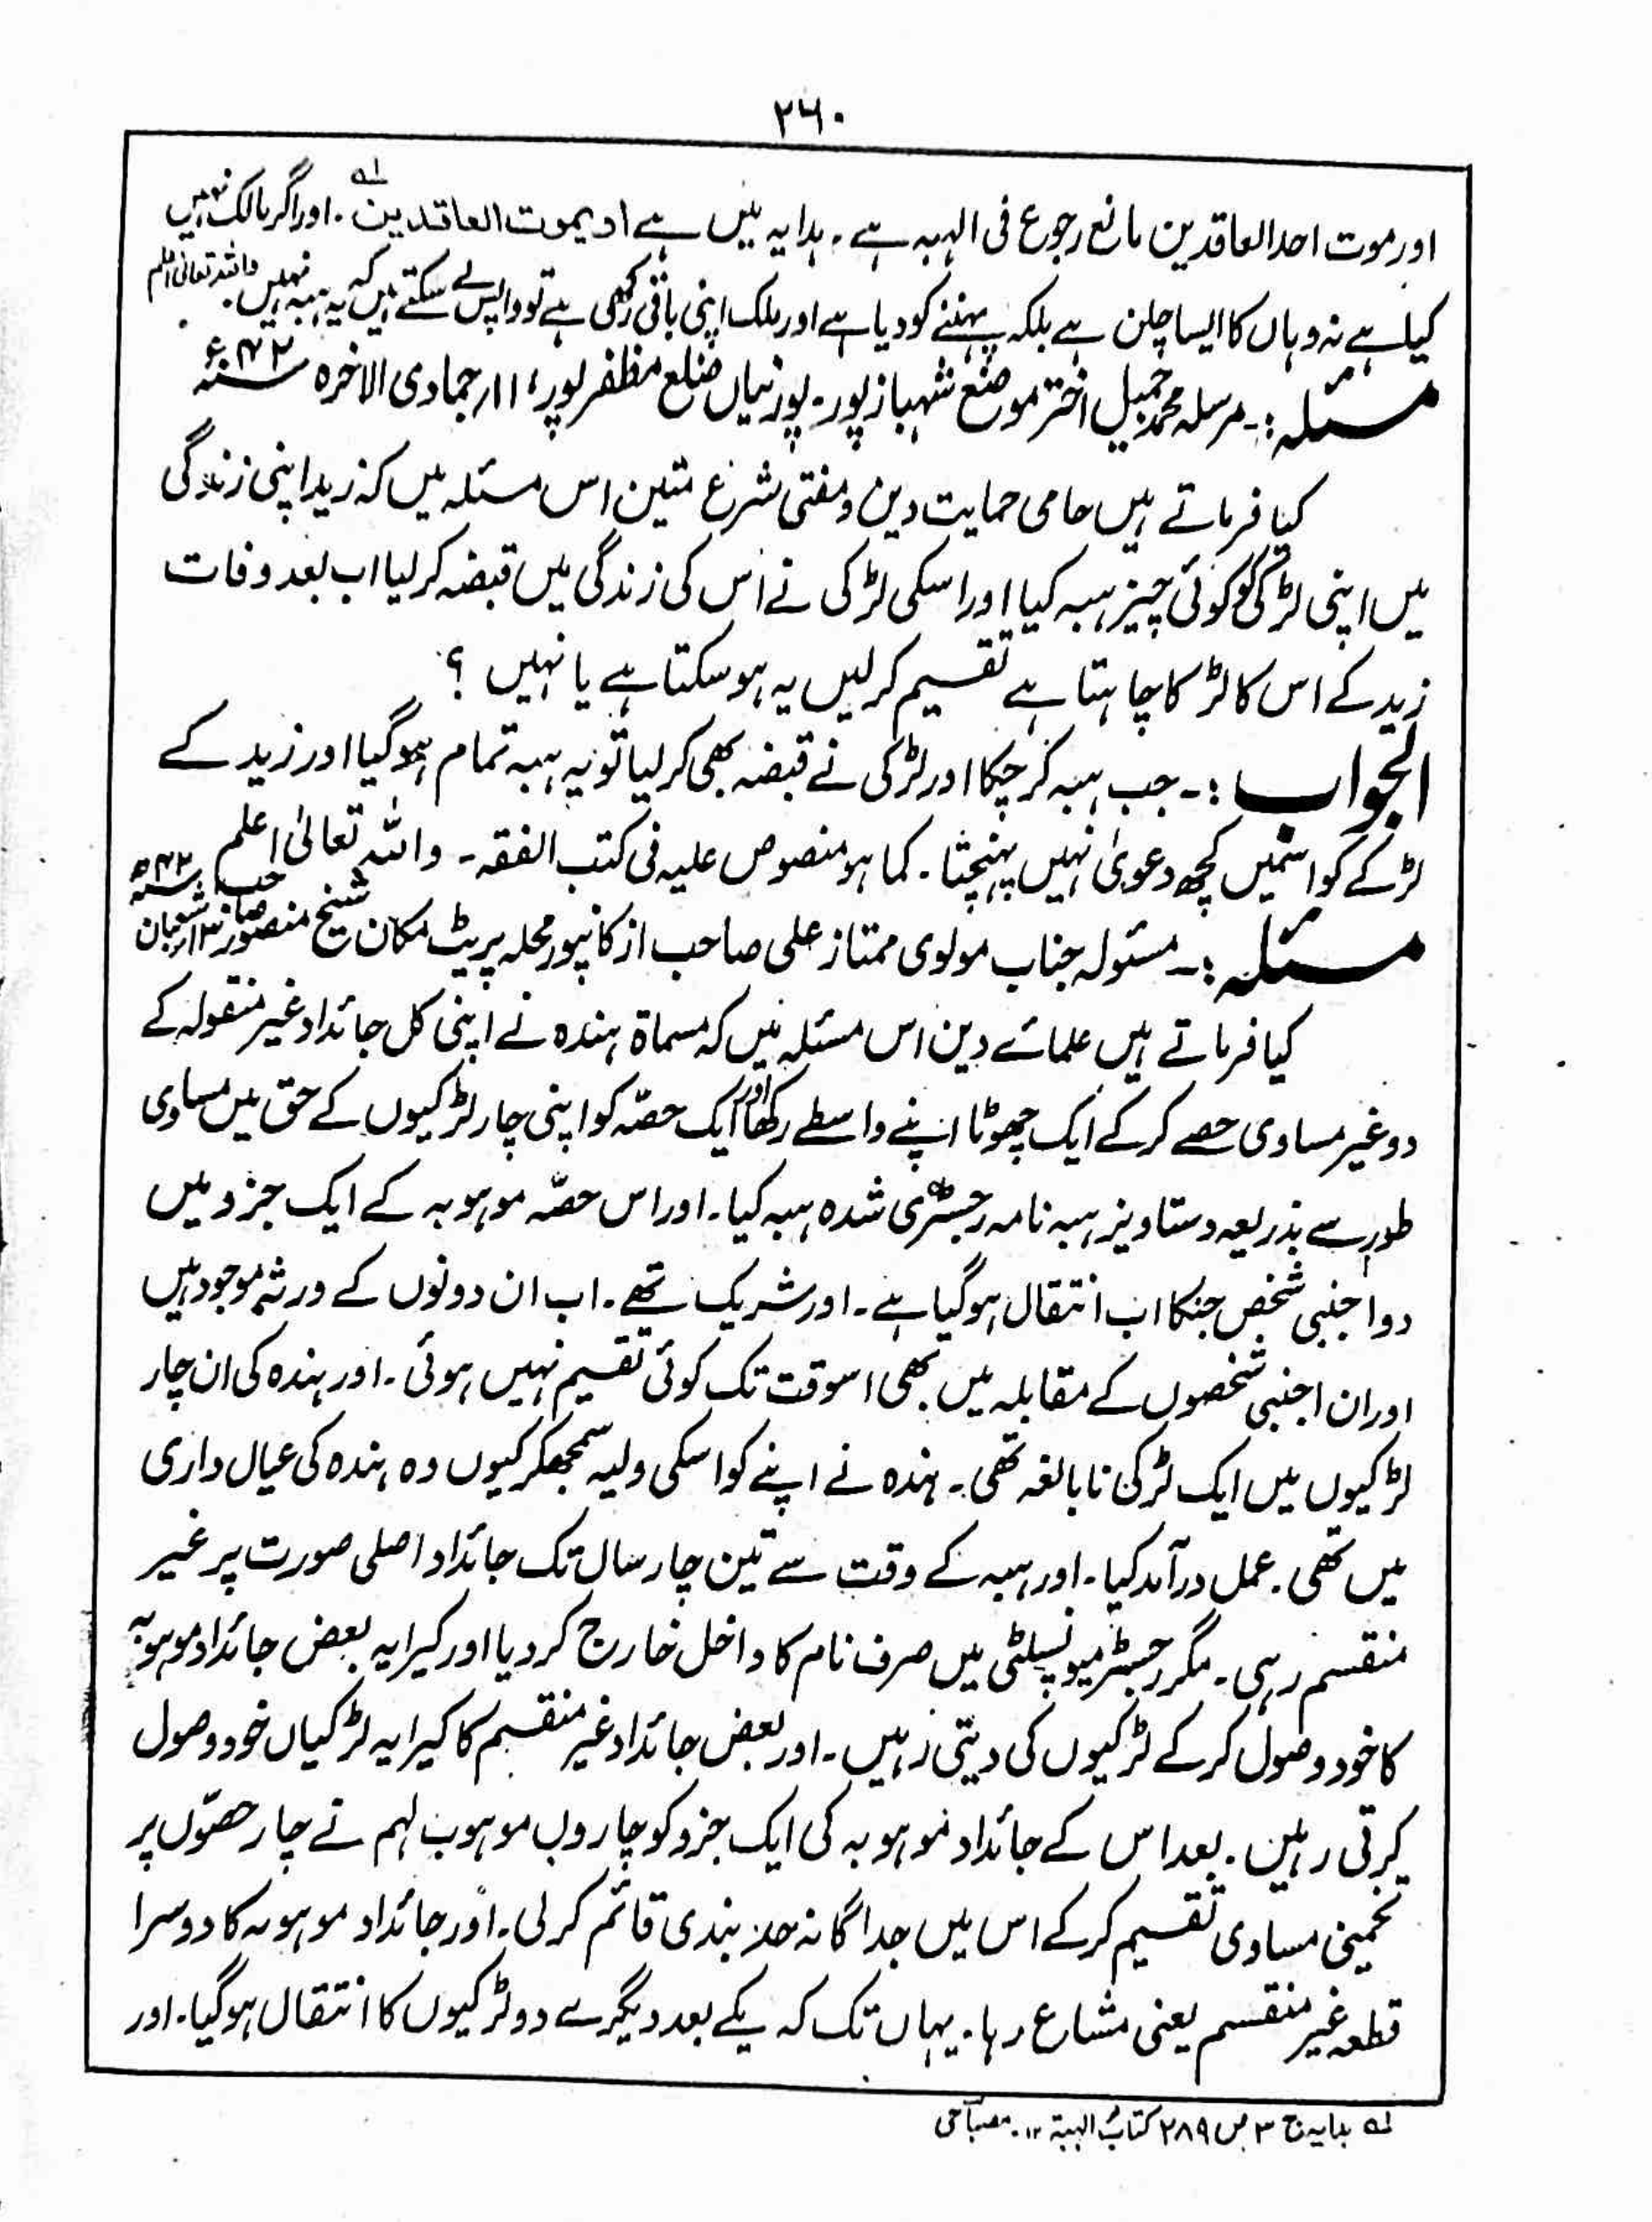 ۲۶۰
اور موت احد العاقدین مانع رجوع فی الہبہ ہے۔ ہدایہ میں ہے او یموت العاقدین لہ۔ اور اگر مالک نہیں
کیا ہے نہ وہاں کا ایسا چلن ہے بلکہ پہننے کو دیا ہے اور ملک اپنی باقی رکھی ہے تو واپس لے سکتے ہیں کہ یہ ہبہ نہیں۔ واللہ تعالیٰ اعلم
مسئلہ :۔ مرسلہ محمد جمیل اختر موضع شہباز پور۔ پورنیاں ضلع مظفر پور، ۱۱ر جمادی الاخرہ سنہ ۴۲ء
کیا فرماتے ہیں حامی حمایت دین و مفتی شرع متین اس مسئلہ میں کہ زید اپنی زندگی
میں اپنی لڑکی کو کوئی چیز ہبہ کیا اور اسکی لڑکی نے اس کی زندگی میں قبضہ کر لیا اب بعد وفات
زید کے اس کا لڑکا چاہتا ہے تقسیم کر لیں یہ ہو سکتا ہے یا نہیں ؟
الجواب :۔ جب ہبہ کر چکا اور لڑکی نے قبضہ بھی کر لیا تو یہ ہبہ تمام ہو گیا اور زید کے
لڑکے کو اسمیں کچھ دعویٰ نہیں پہنچتا۔ کما ہو منصوص علیہ فی کتب الفقہ۔ واللہ تعالیٰ اعلم
مسئلہ :۔ مسئولہ جناب مولوی ممتاز علی صاحب از کانپور محلہ پریٹ مکان شیخ منصور صاحب ۱۳ر شعبان سنہ ۴۲ھ
کیا فرماتے ہیں علمائے دین اس مسئلہ میں کہ مسماۃ ہندہ نے اپنی کل جائداد غیر منقولہ کے
دو غیر مساوی حصے کر کے ایک چھوٹا اپنے واسطے رکھا اور ایک حصّہ کو اپنی چار لڑکیوں کے حق میں مساوی
طور سے بذریعہ دستاویز ہبہ نامہ رجسٹری شدہ ہبہ کیا۔ اور اس حصّہ موہوبہ کے ایک جزو میں
دو اجنبی شخص جنکا اب انتقال ہو گیا ہے۔ اور شریک تھے۔ اب ان دونوں کے ورثہ موجود ہیں
اور ان اجنبی شخصوں کے مقابلہ میں بھی اسوقت تک کوئی تقسیم نہیں ہوئی۔ اور ہندہ کی ان چار
لڑکیوں میں ایک لڑکی نابالغہ تھی۔ ہندہ نے اپنے کو اسکی ولیہ سمجھکر کیوں وہ ہندہ کی عیال داری
میں تھی۔ عمل درآمد کیا۔ اور ہبہ کے وقت سے تین چار سال تک جائداد اصلی صورت پر غیر
منقسم رہی۔ مگر رجسٹر میونسپلٹی میں صرف نام کا داخل خارج کر دیا اور کیرایہ بعض جائداد موہوبہ
کا خود وصول کر کے لڑکیوں کی دیتی رہیں۔ اور بعض جائداد غیر منقسم کا کیرایہ لڑکیاں خود وصول
کرتی رہیں۔ بعد اس کے جائداد موہوبہ کی ایک جزو کو چاروں موہوب لہم نے چار حصّوں پر
تخمینی مساوی تقسیم کر کے اس میں جداگانہ حد بندی قائم کر لی۔ اور جائداد موہوبہ کا دوسرا
قطعہ غیر منقسم یعنی مشارع رہا۔ یہاں تک کہ یکے بعد دیگرے دو لڑکیوں کا انتقال ہو گیا۔ اور
لہ ہدایہ ج ۳ ص ۲۸۹ کتاب الہبۃ ۱۲۔ مصباحی